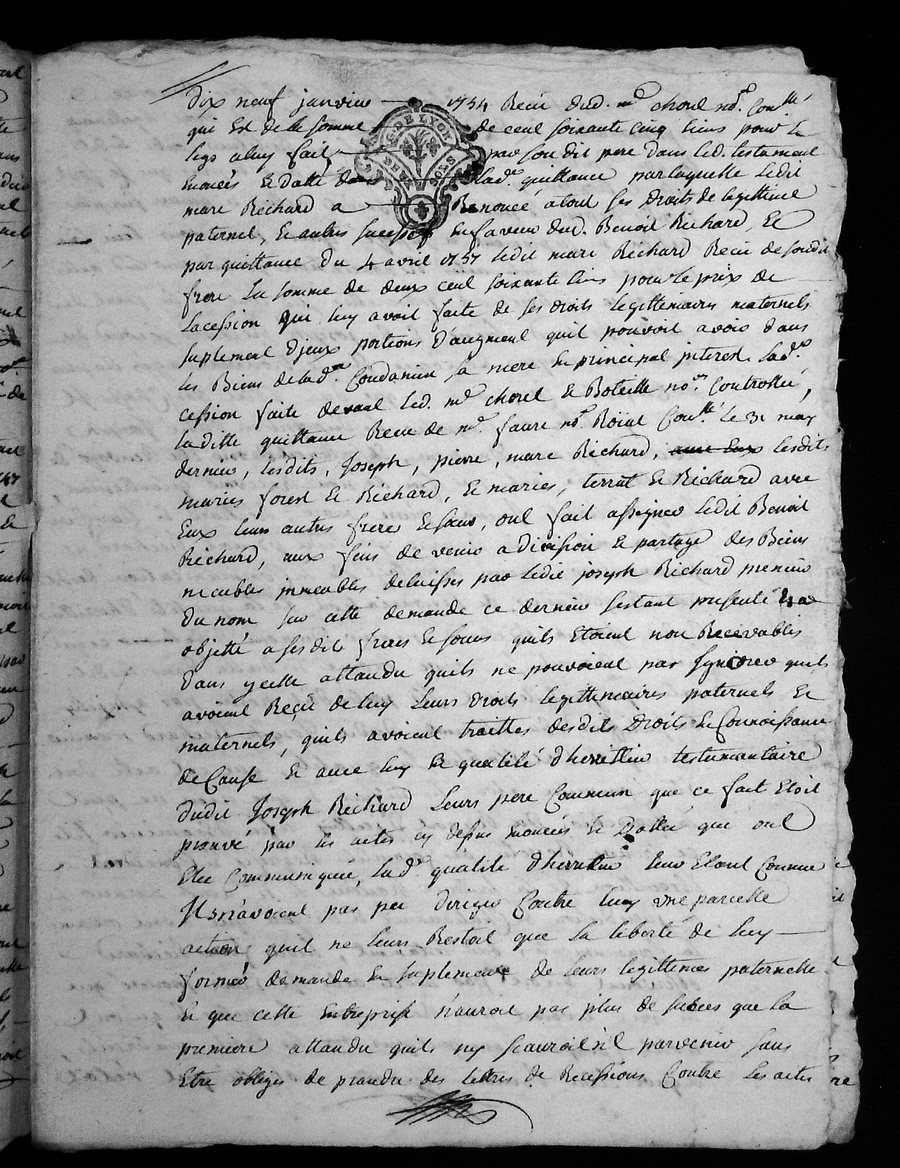 dix neuf janvier 1754 Recu dud. me. chorel nore. Conllé
qui Est de la somme de cent soixante cinq livres pour le
legs a luy fait par son dit pere dans led. testament
enoncés Et datté dans lade. quittance par laquelle ledit
marc Richard a Renoncé a tout ses Droits de legitime
paternel, Et autres sucessif En faveur dud. Benoit Richard, Et
par quittance du 4 avril 1757 ledit marc Richard Recu de son dit
frere la somme de deux cent soixante livres pour le prix de
la cession qui luy avoit faite de ses droits legittimaires maternels
suplement d'jeux portions d'augment quil pouvoit avois dans
les Biens de lade. Condamin sa mere En principal interest lade.
cession faite devant led. me. chorel Et Boteille nore. Controllée,
la ditte quittance Recue de me. faure nore. Roïal Conllé le 31 may
dernier, lesdits, Joseph, pierre, marc Richard, avec Eux lesdits
mariés forest Et Richard, Et mariés, terrat Et Richard avec
Eux leurs autres frere Et sœur, ont fait assigner ledit Benoit
Richard, aux fins de venir a division Et partage des Biens
meubles immeubles delaissés par ledit joseph Richard premier
du nom sur cette demande ce dernier sestant presenté Il a
objetté a ses dit freres Et sœurs quils Etoient non Recevables
Dans jcelle attandu quils ne pouvoient pas Jgnorer quils
avoient Reçû de luy leurs Droits legittimaires paternels Et
maternels, quils avoient traittes desdits Droits En Connoissance
de Cause Et avec luy En qualité d'herittier testamentaire
dudit Joseph Richard leurs pere Commun que ce fait Etoit
prouvé par les actes cy depus enoncés Et Dattés que ont
Etee Communiqué, lade. qualité d'herittier leur Etant Connue
Jls n'avoient pas peu diriger Contre luy une pareille
action quil ne leurs Restoit que la liberté de luy
former demande En suplement de leurs legittimes paternelle
Et que cette Entreprise n'auroit pas plus de succes que la
premiere attandu quils ny scauroient parvenir sans
Etre obliges de prandre des lettres de Recessions Contre les actes
G. DE LYON
DEUX SOLS